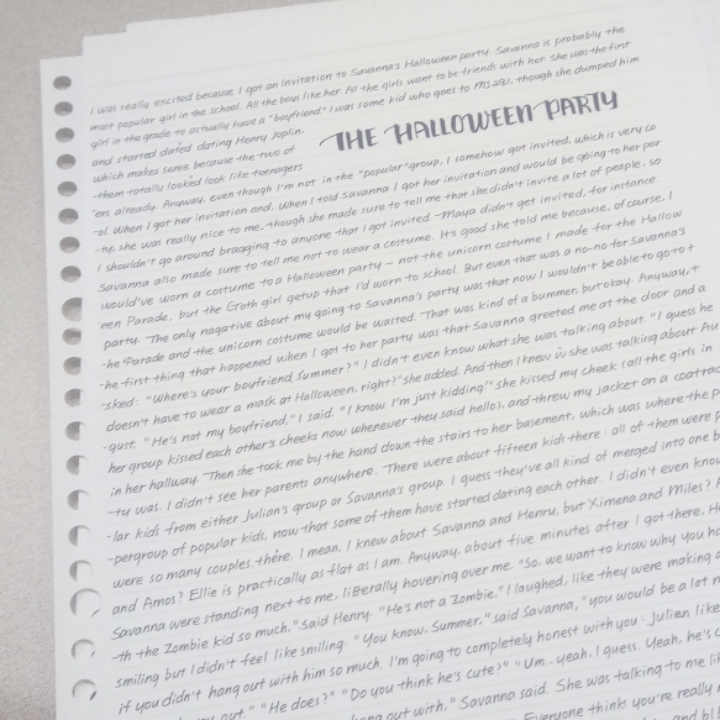 I was really excited because I got an invitation to Savanna's Halloween party. Savanna is probably the
most popular girl in the school. All the boys like her. All the girls want to be friends with her. She was the first
girl in the grade to actually have a "boyfriend" I was some kid who goes to MS 281, though she dumped him
and started dated dating Henry Joplin.
THE HALLOWEEN PARTY
which makes sence because the two of
them totally looked look like teenagers
-ers already. Anyway, even though I'm not in the "popular" group, I somehow got invited, which is very co
-ol. When I got her invitation and, When I told Savanna I got her invitation and would be going to her par
-ty, she was really nice to me, though she made sure to tell me that she didn't invite a lot of people, so
I shouldn't go around bragging to anyone that I got invited. Maya didn't get invited, for instance.
Savanna also made sure to tell me not to wear a costume. It's good she told me because, of course, I
would've worn a costume to a Halloween party – not the unicorn costume I made for the Hallow
-een Parade, but the Groth girl getup that I'd worn to school. But even that was a no-no for Savanna's
party. The only nagative about my going to Savanna's party was that now I wouldn't be able to go to t
-he Parade and the unicorn costume would be wasted. That was kind of a bummer, but okay. Anyway, t
-he first thing that happened when I got to her party was that Savanna greeted me at the door and a
-sked: "Where's your boyfriend, Summer?" I didn't even know what she was talking about. "I guess he
doesn't have to wear a mask at Halloween, right?" she added. And then I knew she was talking about Au
-gust. "He's not my boyfriend," I said. "I know. I'm just kidding!" She kissed my cheek (all the girls in
her group kissed each other's cheeks now whenever they said hello), and threw my jacket on a coatrac
in her hallway. Then she took me by the hand down the stairs to her basement, which was where the p
-ty was. I didn't see her parents anywhere. There were about fifteen kids there: all of them were p
-lar kids from either Julian's group or Savanna's group. I guess they've all kind of merged into one b
-pergroup of popular kids, now that some of them have started dating each other. I didn't even know
were so many couples there. I mean, I knew about Savanna and Henry, but Ximena and Miles? A
and Amos? Ellie is practically as flat as I am. Anyway, about five minutes after I got there, He
Savanna were standing next to me, literally hovering over me. "So, we want to know why you ha
-th the Zombie kid so much," said Henry. "He's not a Zombie," I laughed, like they were making a
smiling but I didn't feel like smiling. "You know, Summer," said Savanna, "you would be a lot m
if you didn't hang out with him so much. I'm going to completely honest with you: Julien like
out." "He does?" "Do you think he's cute?" "Um.. yeah, I guess. Yeah, he's c
hang out with." Savanna said. She was talking to me li
Everyone think you're really